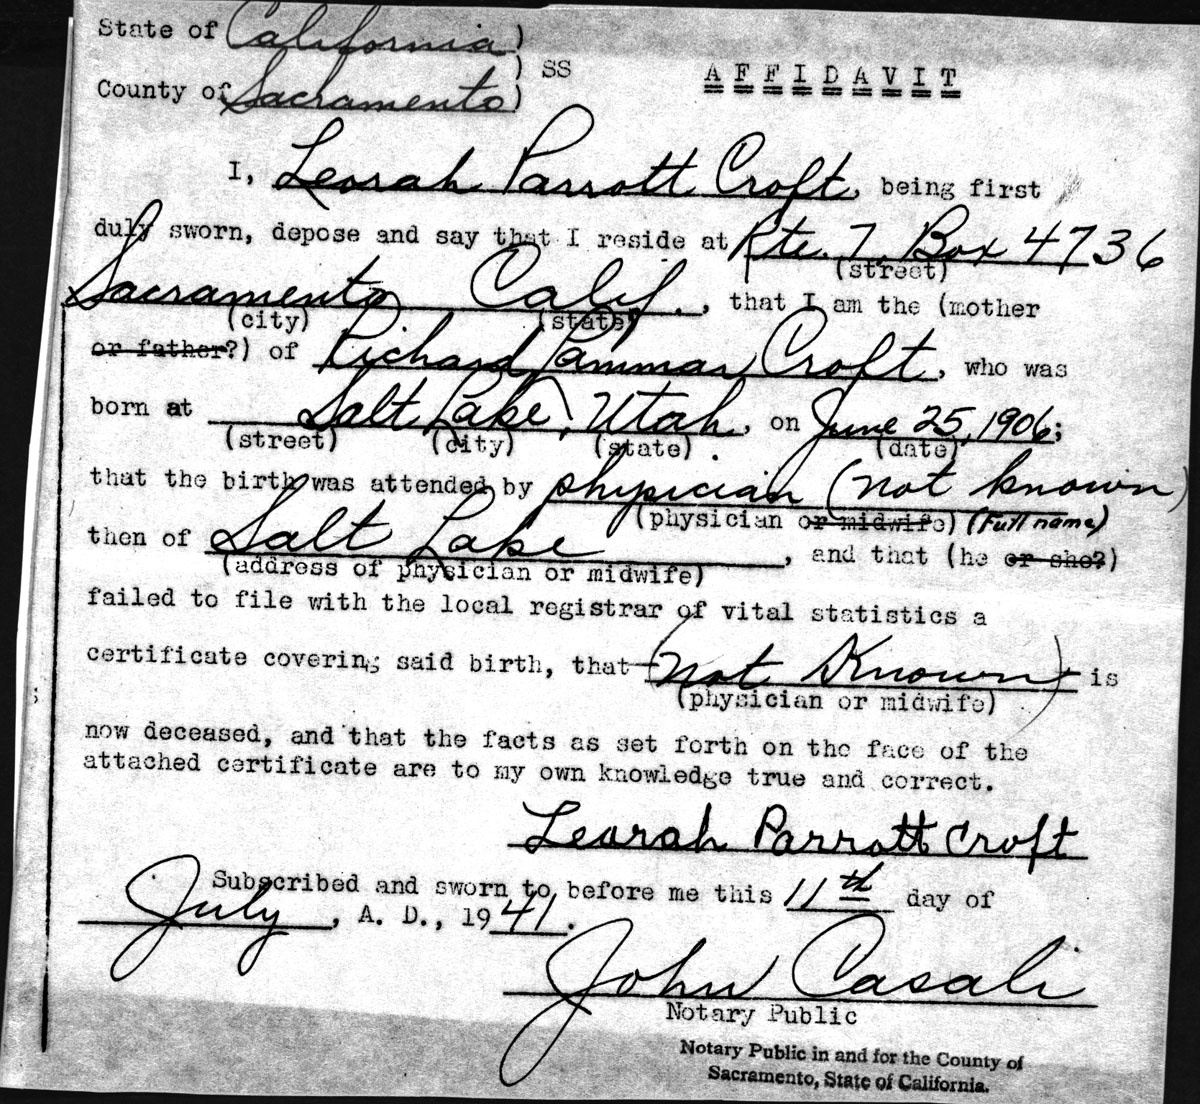 State of California )
) SS AFFIDAVIT
County of Sacramento )
I, Leorah Parrott Croft, being first
duly sworn, depose and say that I reside at Rte. 7 Box 4736
(street)
Sacramento Calif., that I am the (mother
(city) (state)
or father?) of Richard Pammar Croft, who was
born at Salt Lake, Utah, on June 25, 1906;
(street) (city) (state) (date)
that the birth was attended by physician (not known)
(physician or midwife) (Full name)
then of Salt Lake, and that (he or she?)
(address of physician or midwife)
failed to file with the local registrar of vital statistics a
certificate covering said birth, that (not Known) is
(physician or midwife)
now deceased, and that the facts as set forth on the face of the
attached certificate are to my own knowledge true and correct.
Leorah Parrott Croft
Subscribed and sworn to before me this 11th day of
July, A. D., 1941.
John Casali
Notary Public
Notary Public in and for the County of
Sacramento, State of California.